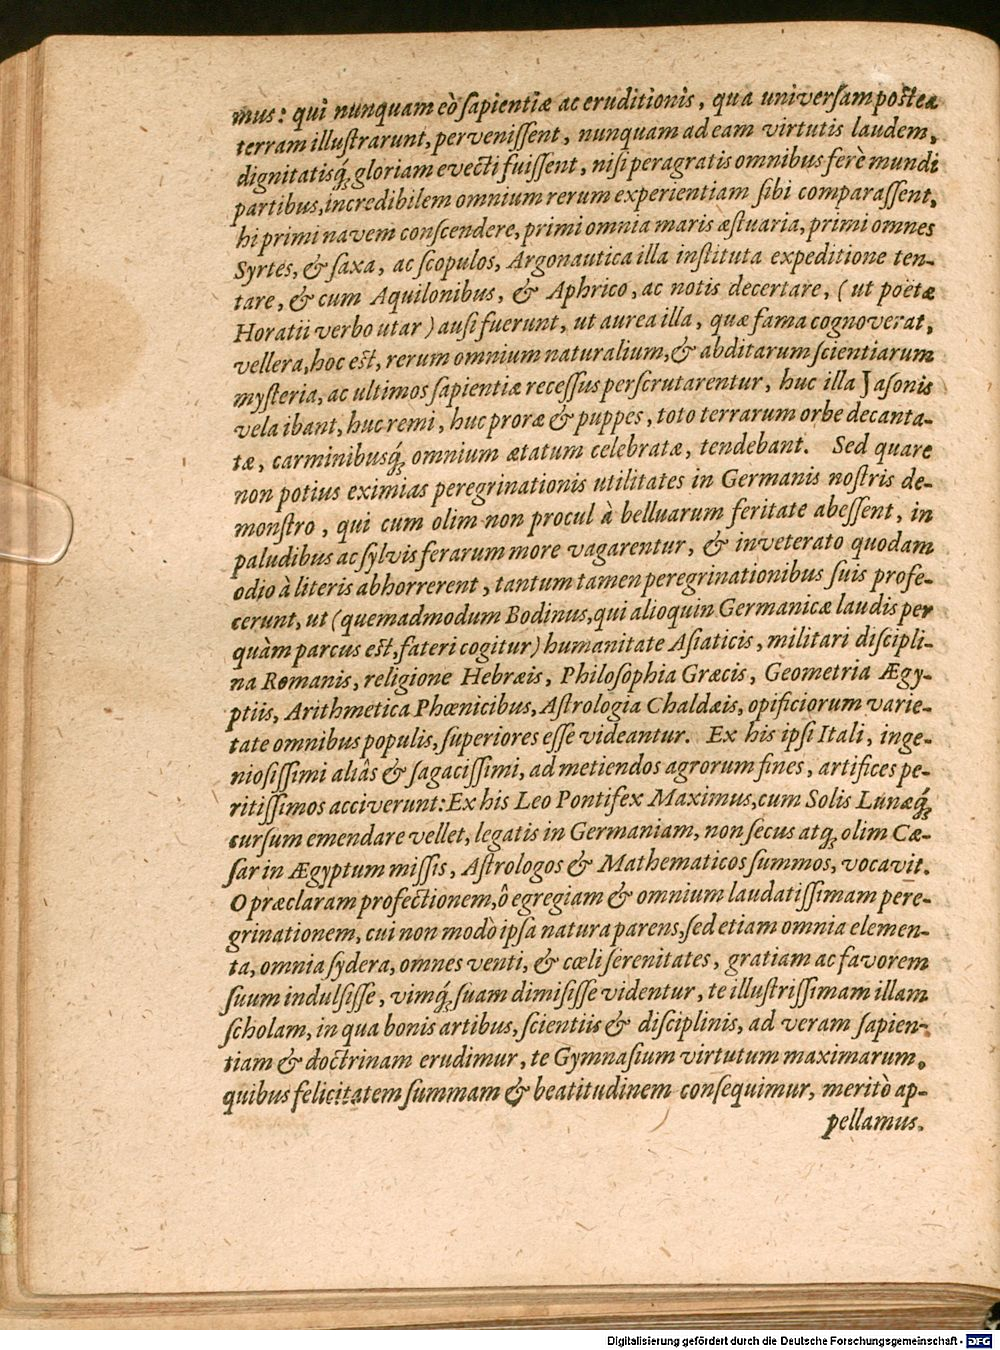 mus: qui nunquam eò ſapientiæ ac eruditionis, qua univerſam poſtea
terram illuſtrarunt, perveniſſent, nunquam ad eam virtutis laudem,
dignitatisq́; gloriam evecti fuiſſent, niſi peragratis omnibus ferè mundi
partibus, incredibilem omnium rerum experientiam ſibi comparaſſent,
hi primi navem conſcendere, primi omnia maris æſtuaria, primi omnes
Syrtes, & ſaxa, ac ſcopulos, Argonautica illa inſtituta expeditione ten-
tare, & cum Aquilonibus, & Aphrico, ac notis decertare, ( ut poëtæ
Horatii verbo utar ) auſi fuerunt, ut aurea illa, quæ fama cognoverat,
vellera, hoc eſt, rerum omnium naturalium, & abditarum ſcientiarum
myſteria, ac ultimos ſapientiæ receſſus perſcrutarentur, huc illa Jaſonis
vela ibant, huc remi, huc proræ & puppes, toto terrarum orbe decanta-
tæ, carminibusq́; omnium ætatum celebratæ, tendebant. Sed quare
non potius eximias peregrinationis utilitates in Germanis noſtris de-
monſtro, qui cum olim non procul à belluarum feritate abeſſent, in
paludibus ac ſylvis ferarum more vagarentur, & inveterato quodam
odio à literis abhorrerent, tantum tamen peregrinationibus ſuis profe-
cerunt, ut (quemadmodum Bodinus, qui alioquin Germanicæ laudis per
quàm parcus eſt, fateri cogitur) humanitate Aſiaticis, militari diſcipli-
na Romanis, religione Hebræis, Philoſophia Græcis, Geometria Ægy-
ptiis, Arithmetica Phœnicibus, Aſtrologia Chaldæis, opificiorum varie-
tate omnibus populis, ſuperiores eſſe videantur. Ex his ipſi Itali, inge-
nioſiſſimi aliâs & ſagaciſſimi, ad metiendos agrorum fines, artifices pe-
ritiſſimos acciverunt: Ex his Leo Pontifex Maximus, cum Solis Lunæq́;
curſum emendare vellet, legatis in Germaniam, non ſecus atq; olim Cæ-
ſar in Ægyptum miſſis, Aſtrologos & Mathematicos ſummos, vocavit.
O præclaram profectionem, ô egregiam & omnium laudatiſſimam pere-
grinationem, cui non modò ipſa natura parens, ſed etiam omnia elemen-
ta, omnia ſydera, omnes venti, & cœli ſerenitates, gratiam ac favorem
ſuum indulſiſſe, vimq́; ſuam dimiſiſſe videntur, te illuſtriſſimam illam
ſcholam, in qua bonis artibus, ſcientiis & diſciplinis, ad veram ſapien-
tiam & doctrinam erudimur, te Gymnaſium virtutum maximarum,
quibus felicitatem ſummam & beatitudinem conſequimur, meritò ap-
pellamus.
Digitalisierung gefördert durch die Deutsche Forschungsgemeinschaft - DFG